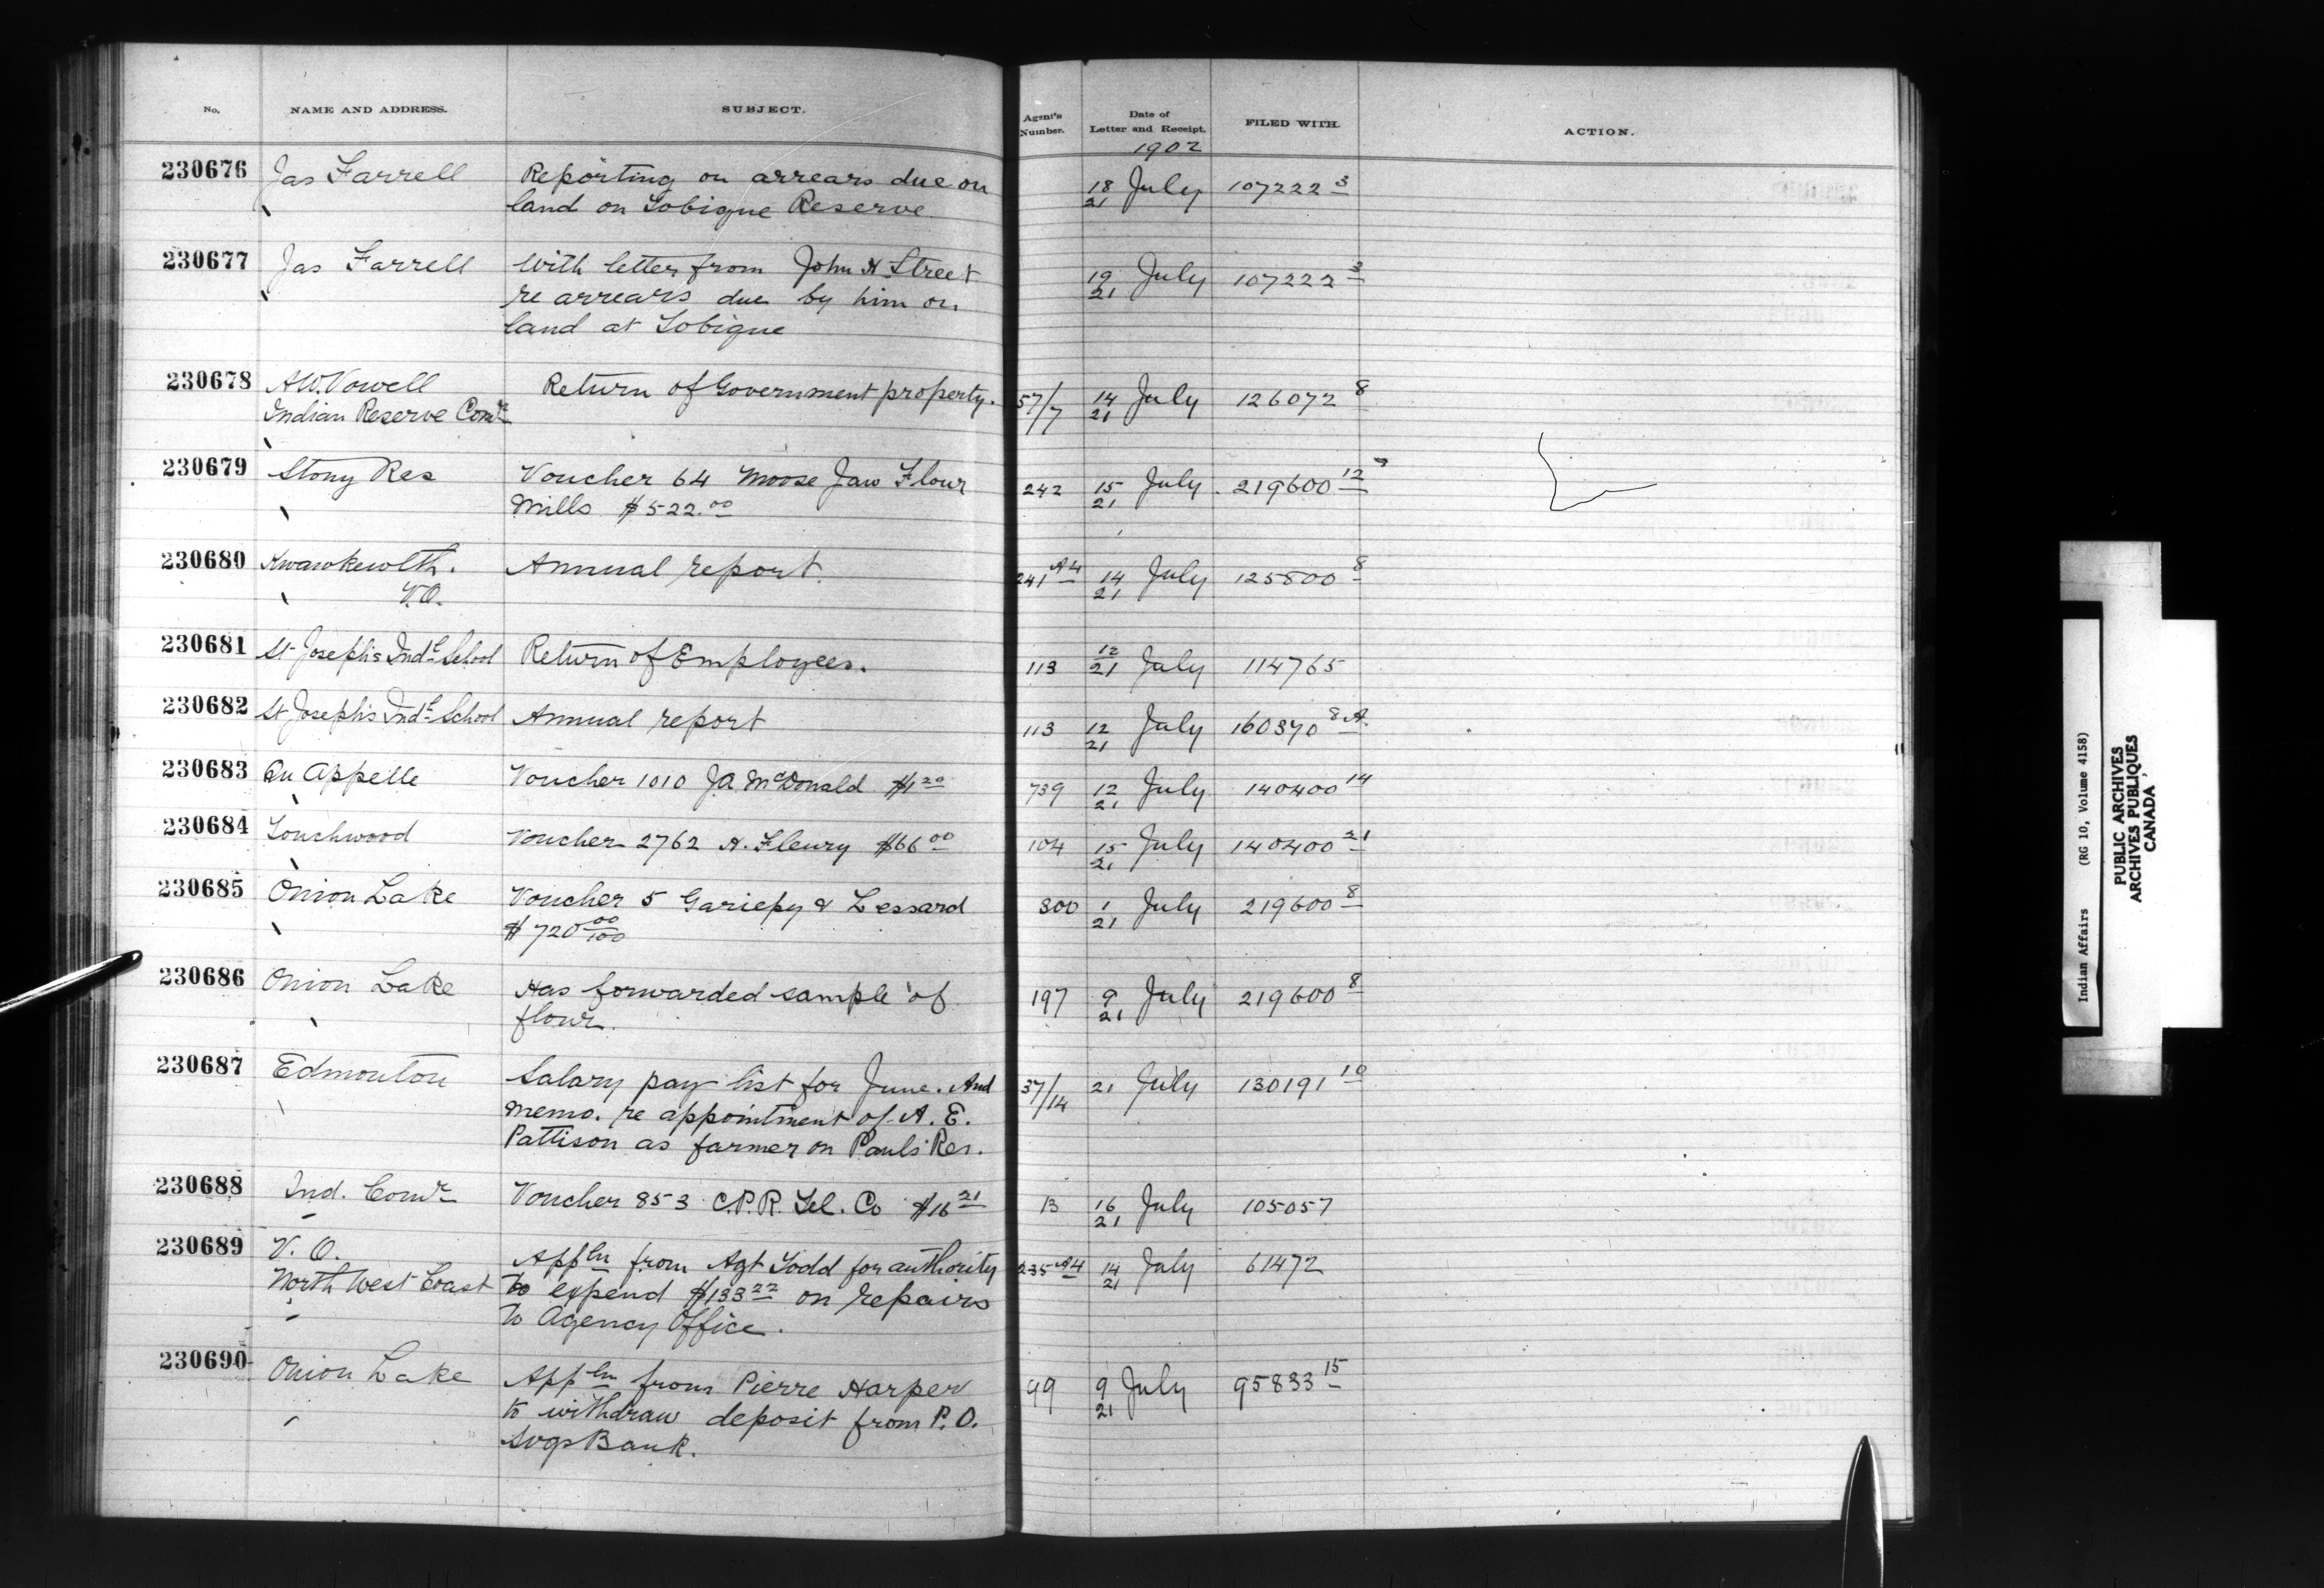 No. NAME AND ADDRESS. SUBJECT. Agent's Number. Date of Letter and Receipt. FILED WITH. ACTION.
1902
230676 Jas Farrell Reporting on arrears due on 18/21 July 107222 3
land on Tobique Reserve
230677 Jas Farrell With letter from John H Street 19/21 July 107222 3
re arrears due by him on
land at Tobique
230678 A.W. Vowell Return of Government property. 57/7 14/21 July 126072 8
Indian Reserve Comr
230679 Stony Res Voucher 64 Moose Jaw Flour 242 15/21 July 219600 12
Mills $522.00
230680 Kwawkewlth. Annual report. 241 A4 14/21 July 125800 8
V.O.
230681 St Joseph's Indl School Return of Employees. 113 12/21 July 114765
230682 St Joseph's Indl School Annual report 113 12/21 July 160370 8A.
230683 Qu Appelle Voucher 1010 JA McDonald $1 20 739 12/21 July 140400 14
230684 Touchwood Voucher 2762 A. Fleury $66 00 104 15/21 July 140400 21
230685 Onion Lake Voucher 5 Gariepy & Lessard 300 1/21 July 219600 8
$720 00/100
230686 Onion Lake Has forwarded sample of 197 9/21 July 219600 8
flour.
230687 Edmonton Salary pay list for June. And 37/14 21 July 130191 10
memo. re appointment of A. E.
Pattison as farmer on Paul's Res.
230688 Ind. Comr Voucher 853 C.P.R. Tel. Co $16 21 13 16/21 July 105057
230689 V. O. Appln from Agt Todd for authority 235 A4 14/21 July 61472
North West Coast to expend $133 22 on repairs
to Agency Office.
230690 Onion Lake Appln from Pierre Harper 99 9/21 July 95833 15
to withdraw deposit from P.O.
Svgs Bank.
Indian Affairs (RG 10, Volume 4158)
PUBLIC ARCHIVES
ARCHIVES PUBLIQUES
CANADA